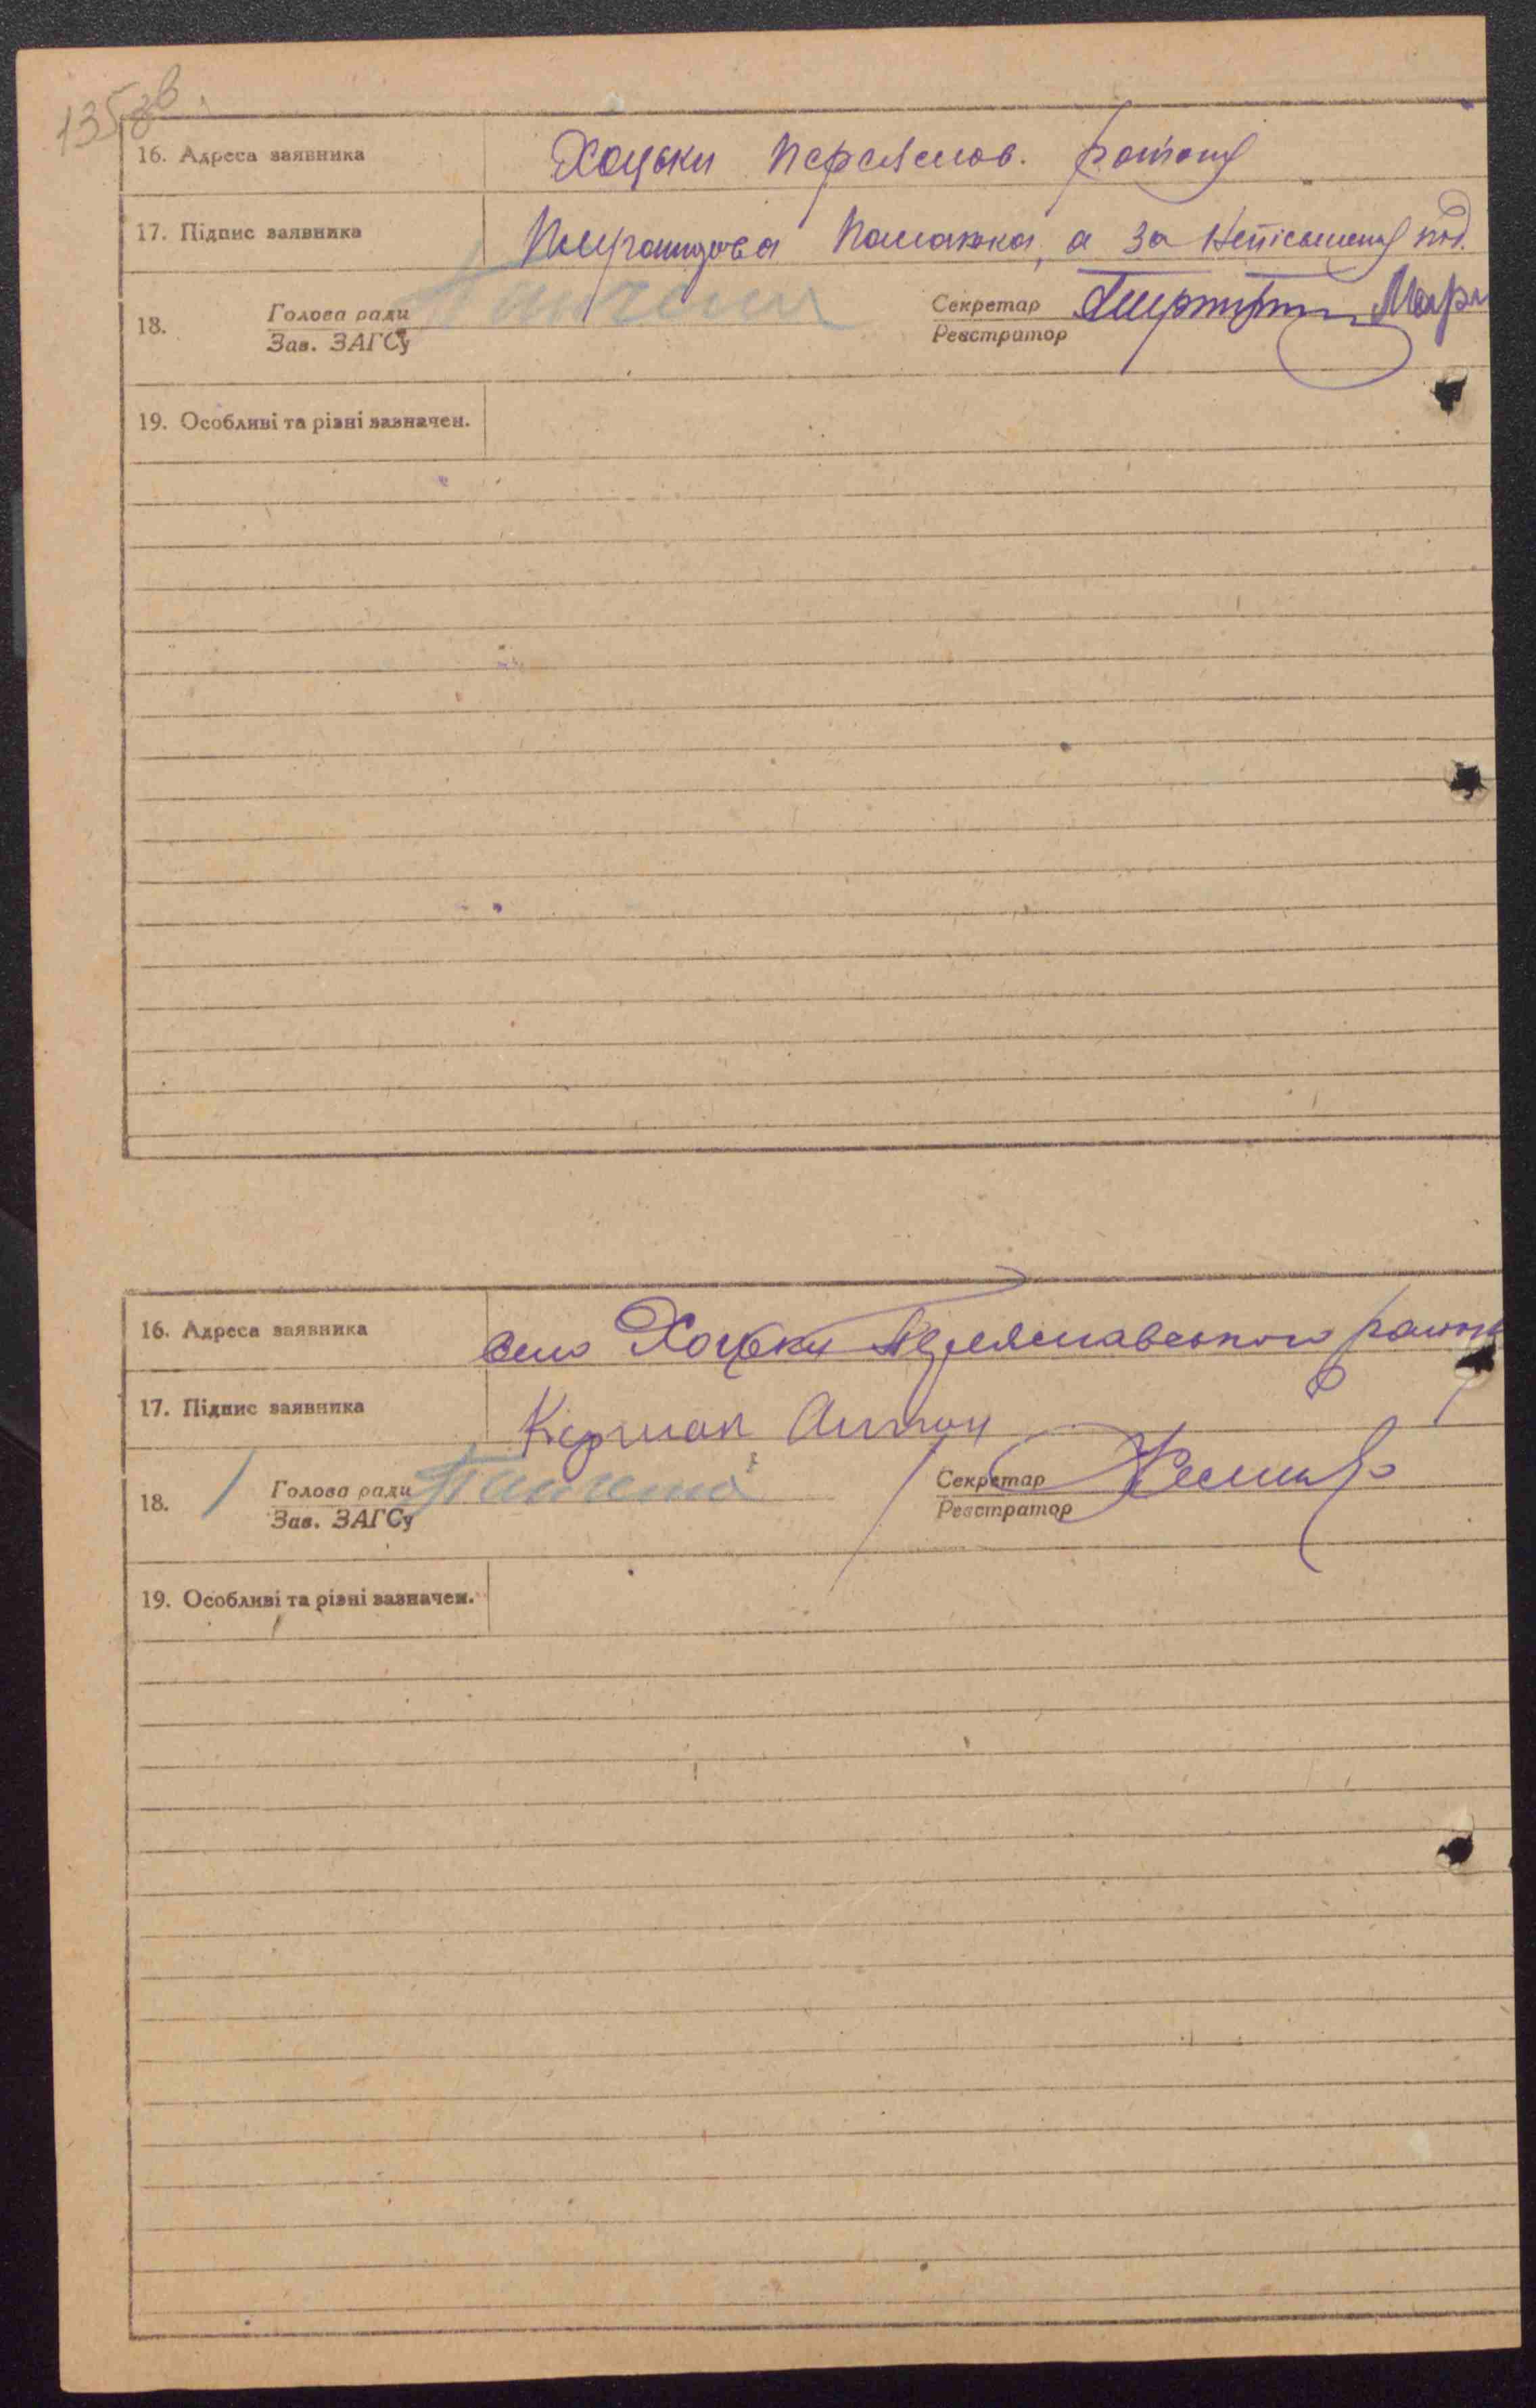 135зв.
16. Адреса заявника Хоцьки Переяслов. району
17. Підпис заявника Памажка, а за неписьмену під.
18. Голова ради Секретар
Зав. ЗАГСу Реєстратор
19. Особливі та різні зазначен.
16. Адреса заявника село Хоцьки Переяславського району
17. Підпис заявника Кермак Антон
18. Голова ради Секретар
Зав. ЗАГСу Реєстратор
19. Особливі та різні зазначен.